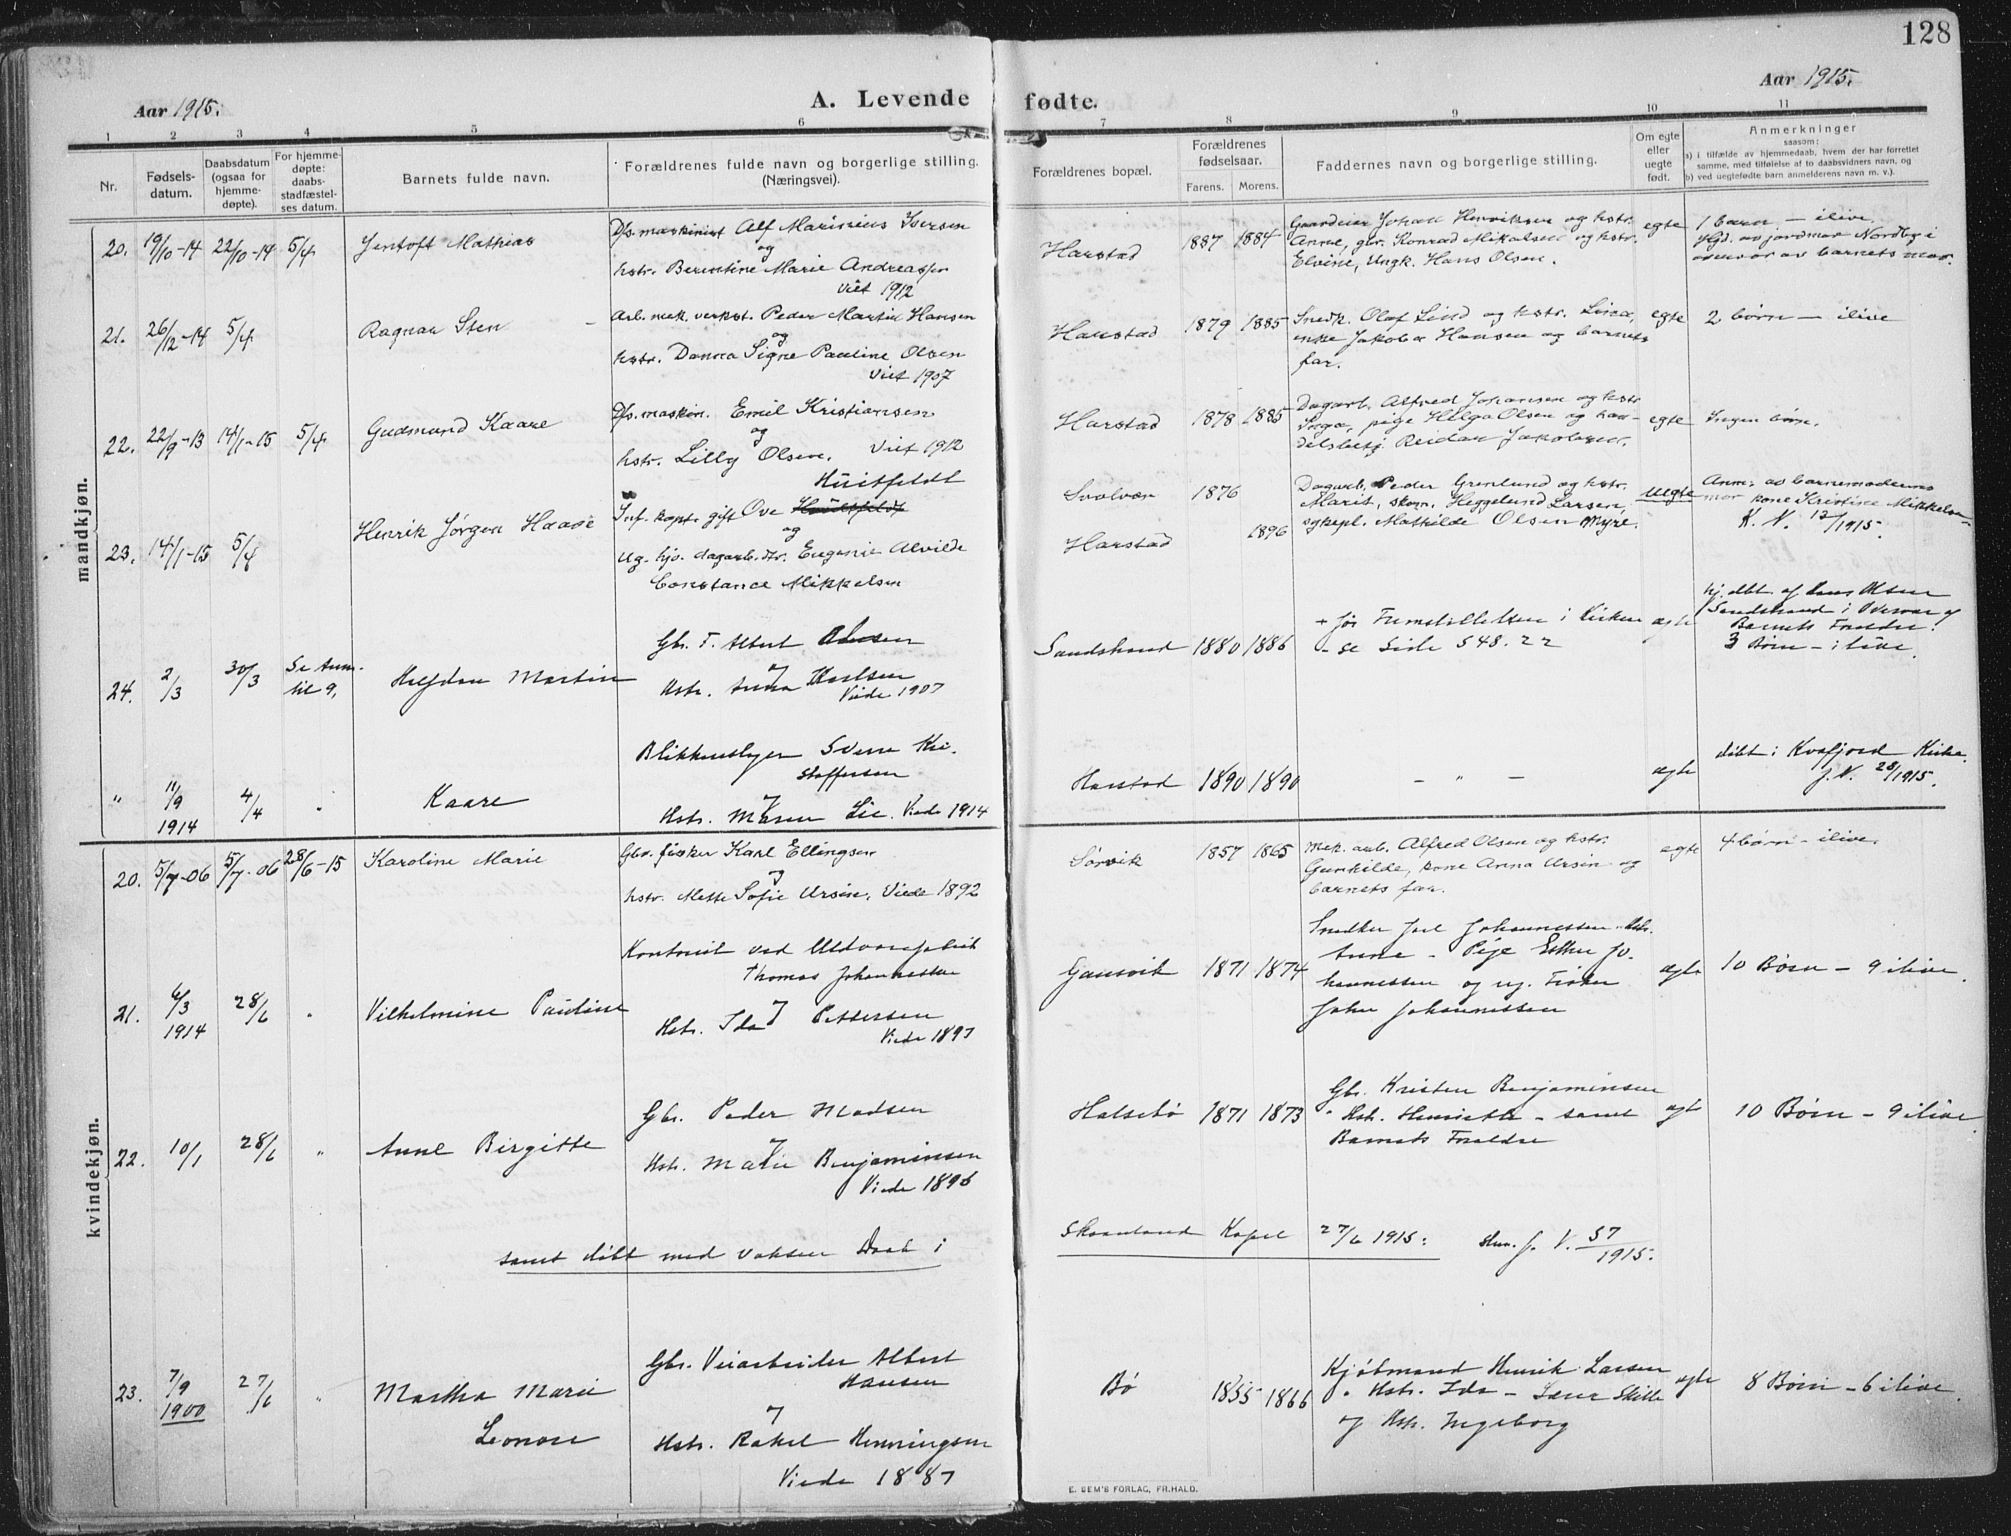 128
Aar 1915.
A. Levende fødte.
Aar 1915.
1 2 3 4 5 6 7 8 9 10 11
Nr.
Fødsels-
datum.
Daabsdatum
(ogsaa for
hjemme-
døpte).
For hjemme-
døpte:
daabs-
stadfæstel-
ses datum.
Barnets fulde navn.
Forældrenes fulde navn og borgerlige stilling.
(Næringsvei).
Forældrenes bopæl.
Forældrenes
fødselsaar.
Farens. Morens.
Faddernes navn og borgerlige stilling.
Om egte
eller
uegte
født.
Anmerkninger
saasom:
a) i tilfælde av hjemmedaab, hvem der har forrettet
samme, med tilføielse af to daabsvidners navn, og
b) ved uegtefødte barn anmelderens navn m. v.).
mandkjøn.
20. 19/10-14 22/10-14 5/4 Jentoft Mathias
Dfs. maskinist Alf Marinius Iversen
og
hstr. Berentine Marie Andreassen
Viet 1912
Harstad 1887 1884
Gaardeier Johan Henriksen og hstr.
Anne, gbr. Konrad Mikalsen og hstr.
Elvine, Ungk. Hans Olsen.
egte
1 barn - ilive.
Hjd. av jordmor Nordby i
overvær av barnets mor.
21. 26/12-14 5/4 Ragnar Sten
Arb. mek. verkst. Peder Martin Hansen
og
hstr. Danna Signe Pauline Olsen
Viet 1907
Harstad 1879 1885
Snedk. Olaf Lind og hstr. Lina,
enke Jakoba Hansen og barnets
far.
egte
2 børn - ilive
22. 22/9-13 14/1-15 5/4 Gudmund Kaare
Dfs. maskin. Emil Kristiansen
og
hstr. Lilly Olsen. Viet 1912
Harstad 1878 1885
Dagarb. Alfred Johansen og hstr
Inga, pige Helga Olsen og han-
delsbetj. Reidar Jakobsen.
egte
Ingen børn.
23. 14/1-15 5/4 Henrik Jørgen Haave
Huitfeldt
Inf. kapt. gift Ove Huitfeldt
og
ug. hjv. dagarb. dtr. Eugenie Alvilde
Constance Mikkelsen
Svolvær 1876
Harstad 1896
Dagarb. Peder Grenlund og hstr.
Marit, skom. Heggelund Larsen,
sykepl. Mathilde Olsen Myre.
uegte
Anm. av barnemoderens
mor kone Kristine Mikkelsen
K. N. 12/1915.
24. 2/3 30/3 Se Anm.
til 9, Halfdan Martin
Gbr. F. Albert Olsen
og
Hstr. Anna Karlsen
Viede 1907
Sandstrand 1880 1886
+ før Fremstillelsen i Kirken
- se Side 548. 22
egte
hj. dbt. af Hans Olsen
Sandstrand i Overvær af
Barnets Forældre.
3 Børn - ilive.
" 11/9
1914 4/4 " Kaare
Blikkenslager Sverre Kri-
stoffersen
og
Hstr. Maren Lie. Viede 1914
Harstad 1890 1890 - " - egte
døbt i Kvæfjord Kirke.
J. N. 28/1915.
kvindekjøn.
20. 5/7-06 5/7-06 28/6-15 Karoline Marie
Gbr. fisker Karl Ellingsen
og
hstr. Mette Sofie Ursin. Viede 1892
Sørvik 1857 1865
Mek. arb. Alfred Olsen og hstr.
Gunhilde, kone Anna Ursin og
barnets far.
egte
4 børn - ilive.
21. 6/3
1914 28/6 " Vilhelmine Pauline
Kontorist ved
Thomas Johannessen
og
Hstr. Ida Pettersen
Viede 1897
Gansvik 1871 1874
Snedker Joel Johannessen " Hstr.
Anne - Pige Esther Jo-
hannessen og ug. Fisker
John Johannessen
egte
10 Børn - 9 ilive.
22. 10/1 28/6 " Anne Birgitte
Gbr. Peder Madsen
og
Hstr. Marie Benjaminsen
Viede 1896
Halsebø 1871 1873
Gbr. Kristen Benjaminsen
" Hstr. Henriette - samt
Barnets Forældre
egte
10 Børn - 9 ilive.
samt døbt med voksen Daab i Skaanland Kapel 27/6 1915: J. N. 57/1915.
23. 7/9
1900 27/6 " Martha Marie
Leonore
Gbr. Veiarbeider Albert
Hansen
og
Hstr. Rakel Henningsen
Viede 1887
Bø 1855 1866
Kjøbmand Henrik Larsen
" Hstr. Ida - Lærer Skille
og Hstr. Ingeborg
egte
8 Børn - 6 ilive.
E. SEM'S FORLAG, FR.HALD.